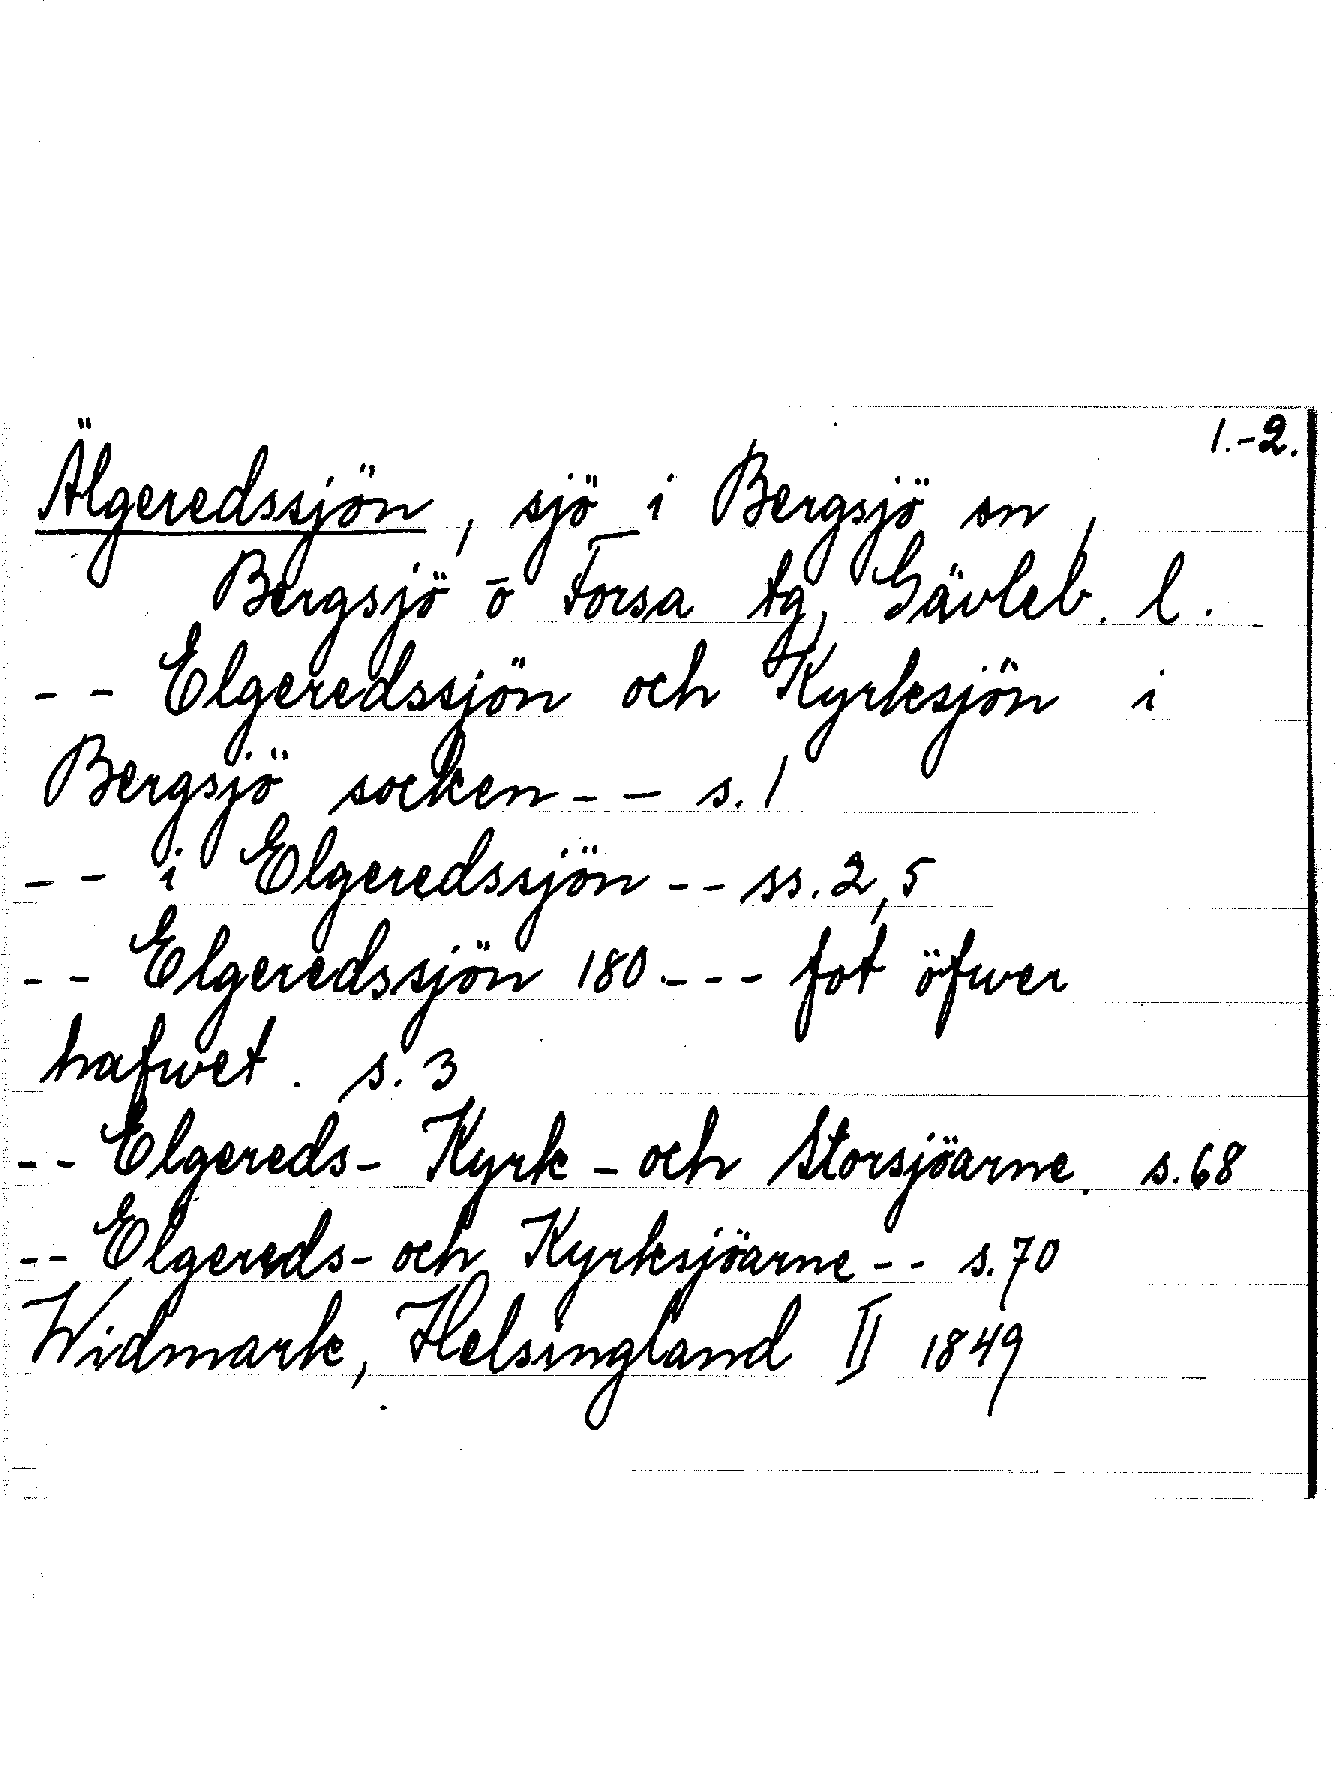 1.-2.
Älgeredssjön, sjö i Bergsjö sn,
Bergsjö o Forsa tg, Gävleb. l.
-- Elgeredssjön och Kyrksjön i
Bergsjö socken -- s. 1
-- i Elgeredssjön -- ss. 2, 5
-- Elgeredssjön 180 --- fot öfwer
hafwet. s. 3
-- Elgereds- Kyrk- och Storsjöarne. s. 68
-- Elgereds- och Kyrksjöarne -- s. 70
Widmark, Helsingland II 1849